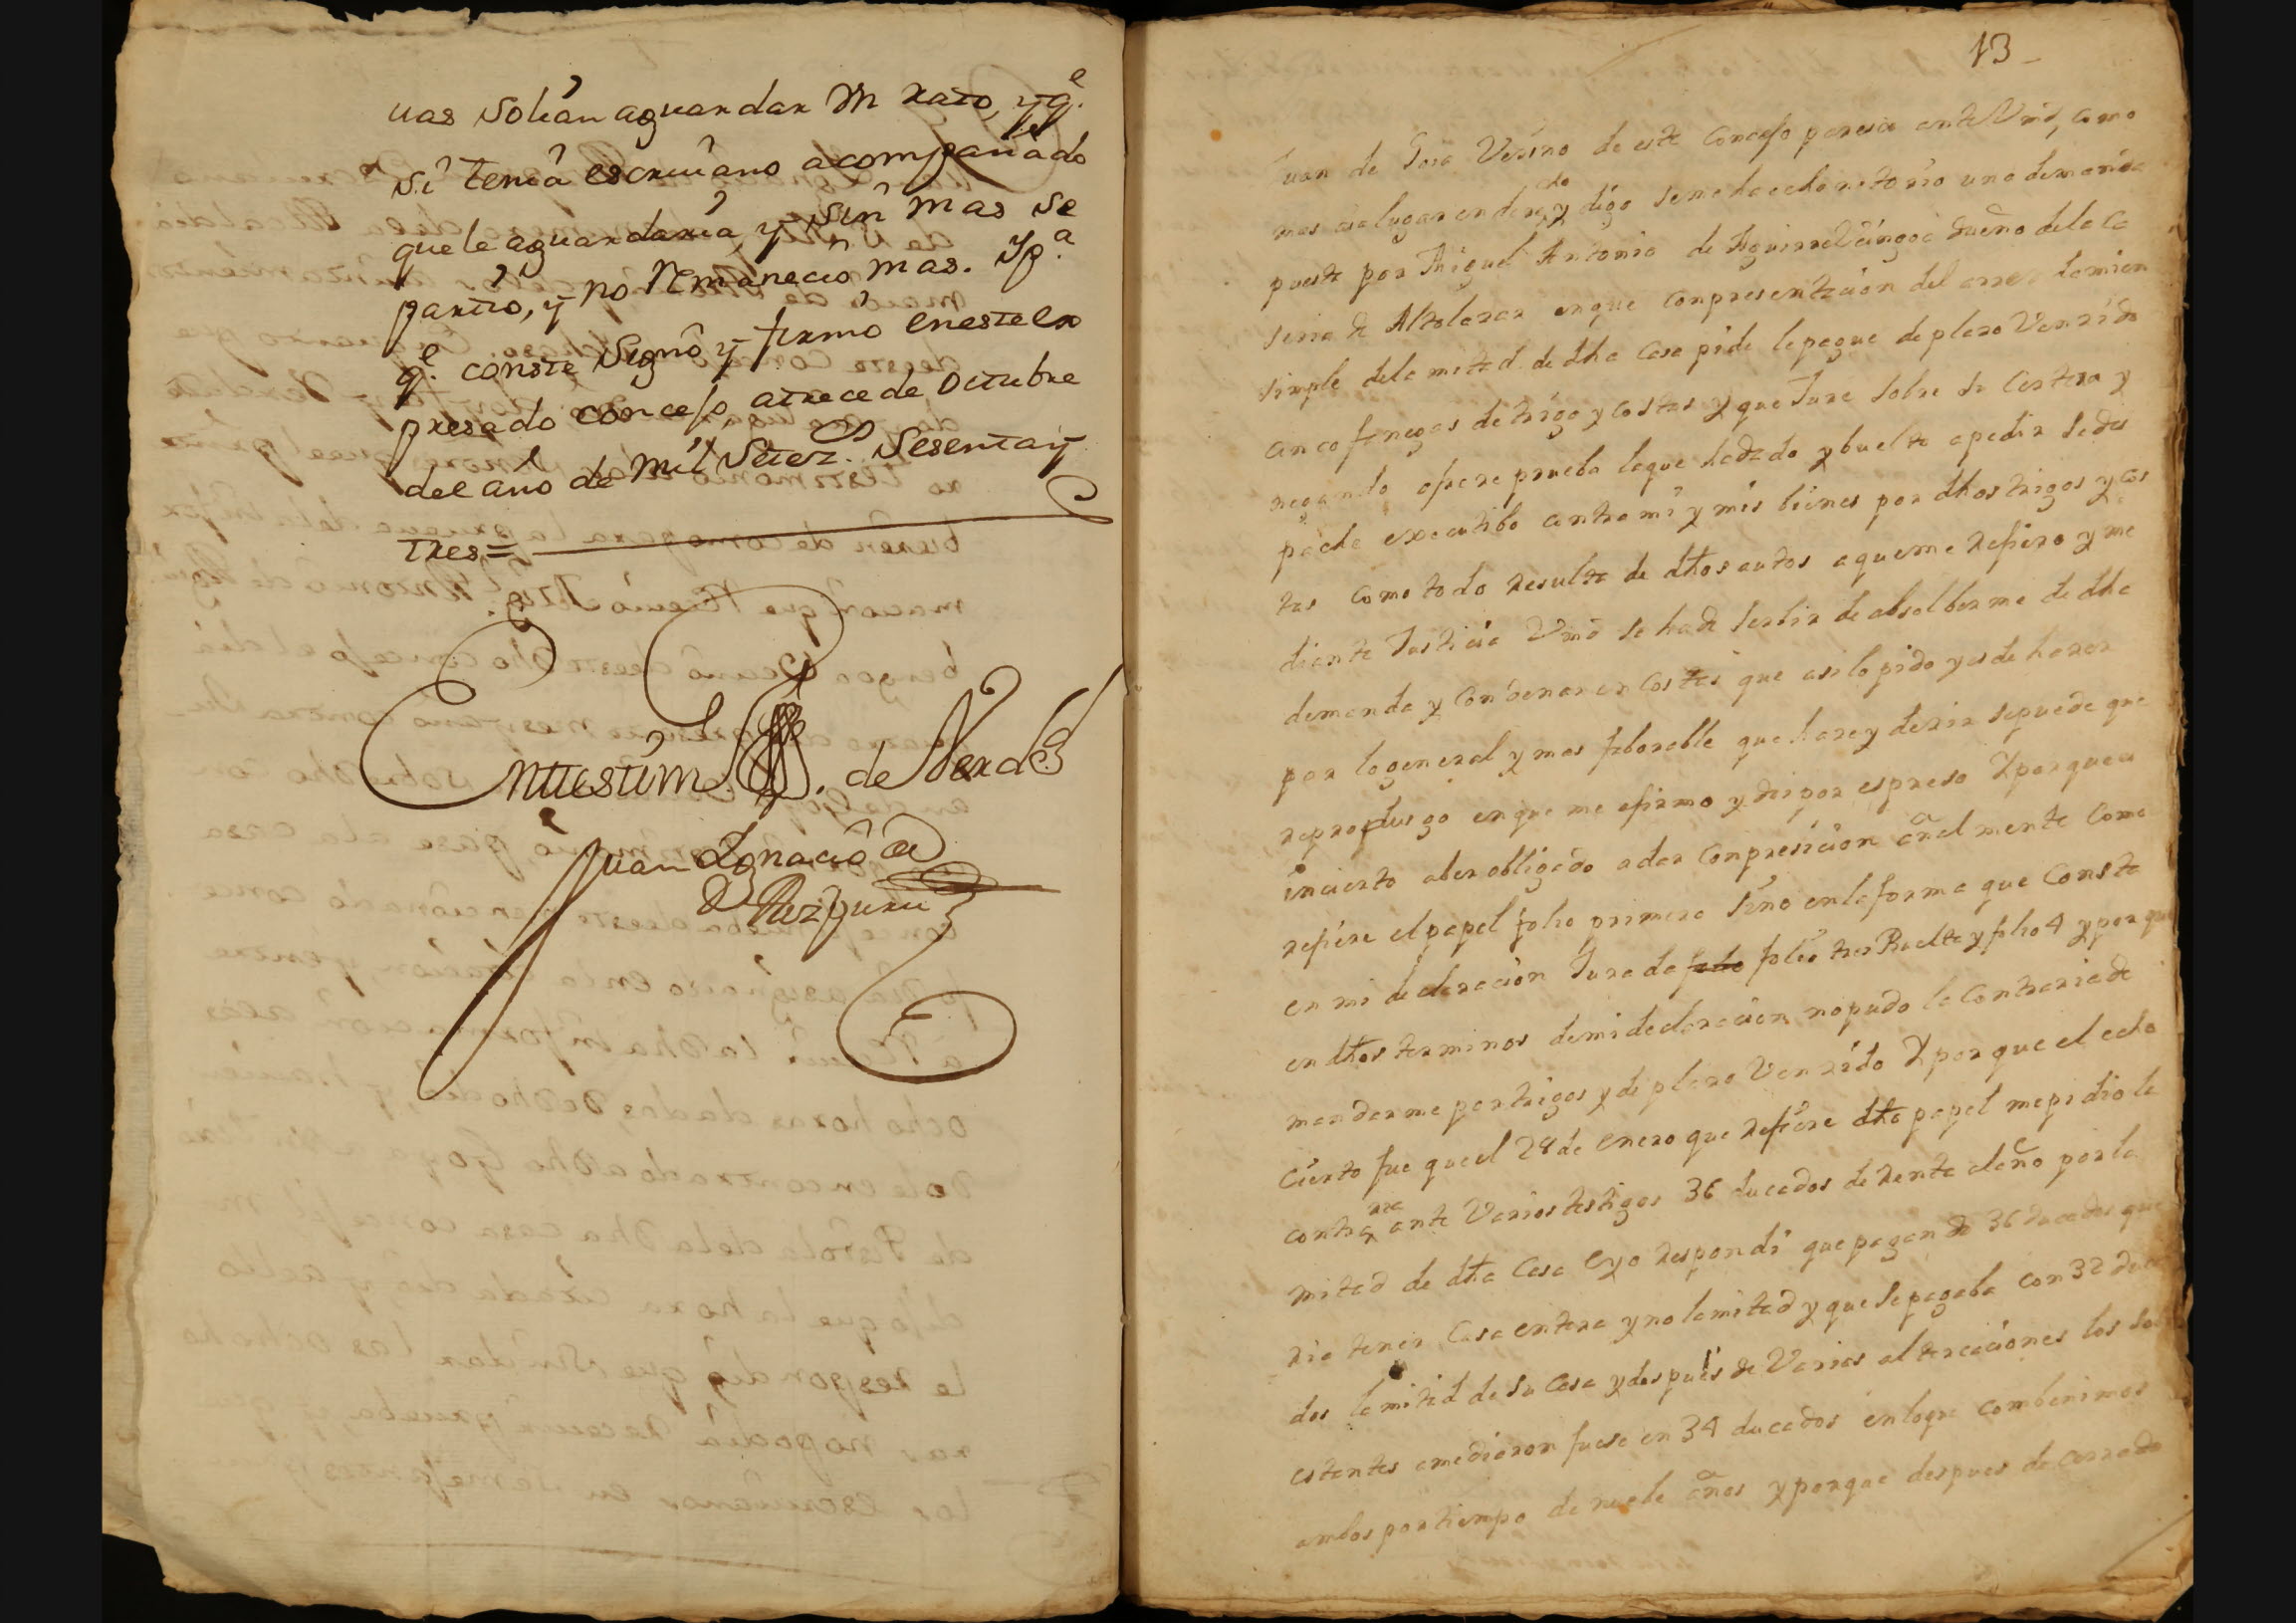 uas Solian aguardar un rato, y q.e
si tenia escriuano acompañado
que le aguardaria, y sin mas se
partio, y no Remanecio mas. Y p.a
q.e conste Signo y firmo en este ex
presado concejo, a trece de Octubre
del año de mil Setez.os Sesenta y
tres=
En testim.o de Verd.d
Juan Ignacio de
13
Juan de Goia Vesino de este Concejo paresco ante Vmd, como
mas aia lugar en derecho y digo se me ha echo notorio una demanda
puesta por Miguel Antonio de Aguirrebeingoa dueño de la ca
seria de Altolaras en que con presentacion del arrendamien
simple de la mitad de dha Casa pide le pague de plazo Venzido
cinco fanegas de trigo y costas y que Jure sobre su Certeza y
negando ofrece prueba la que ha dado y buelto a pedir se des
pache executibo contra mi y mis bienes por dhos trigos y cos
tas como todo resulta de dhos autos a que me refiero y me
diante Justicia Vmd se ha de serbir de absolberme de dha
demanda y Condenar en Costas que asi lo pido y es de hazer
por lo general y mas faborable que hazer y dezir se puede que
reprodusgo en que me afirmo y dezi por espreso Y porque es
incierto aber obligado a dar con presicion añalmente como
refiere el papel folio primero Sino en la forma que Consta
en mi declaracion Jurada folio tres Buelta y folio 4 y porque
en dhos terminos de mi declaracion no pudo la Contraria de
mandarme por trigos y de plazo Venzido Y porque el echo
Cierto fue que el 28 de Enero que refiere dho papel me pidio la
contraria ante Varios testigos 36 ducados de renta al año por la
mitad de dha Casa e yo respondi que pagando 36 ducados que
ria tener Casa entera y no la mitad y que se pagaba con 32 duca
dos la mitad de su Casa y despues de Varias altercaciones los
estantes amediaron fuese en 34 ducados en lo que combenimos
ambos por tiempo de nuebe años y porque despues de cerrado